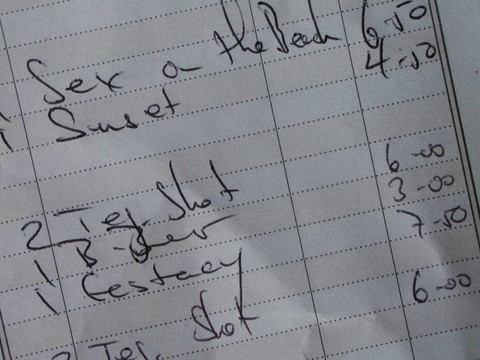 1 Sex on the Beach 6.50
1 Sunset 4-50
2 Teq. Shot 6-00
1 B- 3-00
1 7-50
Teq. Shot 6-00